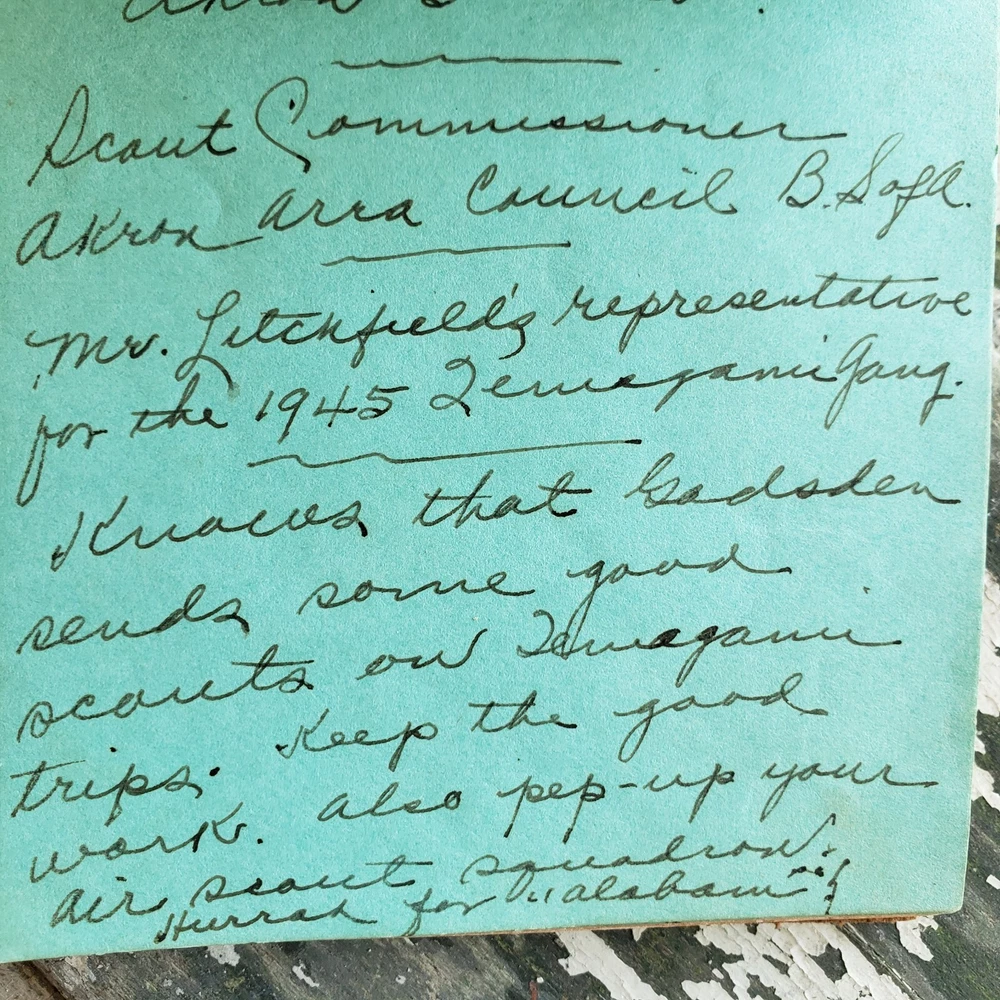 Akron
Scout Commissioner
Akron Area Council B.S of A.
Mr. Litchfield's representative
for the 1945 Temagami Gang.
Knows that Gadsden
sends some good
scouts on Temagami
trips. Keep the good
work. also pep-up your
air scout squadron.
Hurrah for "alabam"!